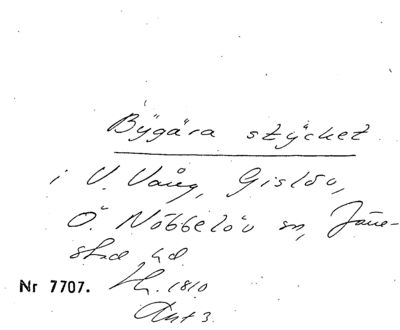 Bygära stycket
i V. Vång, Gislöv,
Ö. Nöbbelöv sn, Järre-
stad hd.
Nr 7707. Sk. 1810
Akt 3.